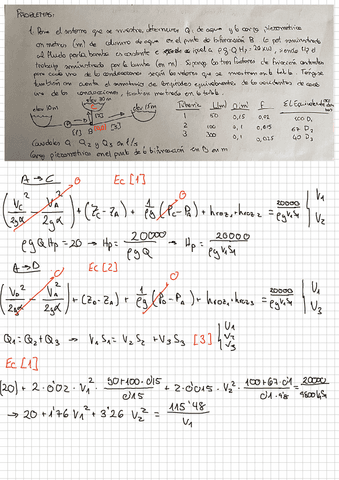 PROBLEMAS:
1. Para el sistema que se muestra, determinar Q, de agua y la carga piezométrica
en metros (m) de columna de agua en el punto de bifurcación B. La pot suministrada
al fluido por la bomba es constante e igual a ρ g Q Hp = 20 kW, siendo Hp el
trabajo suministrado por la bomba (en m). Suponga los factores de fricción constantes
para cada una de las conducciones según los valores que se muestran en la tabla. Tenga
también en cuenta el sumatorio de longitudes equivalentes de accidentes de cada
una de las conducciones, también mostrada en la tabla.
elev 20m
elev 10m
elev 15m
[1]
B
[2]
[3]
Tubería L[m] D[m] F ΣL Equivalente
1 50 0,15 0,02 100 D1
2 100 0,1 0,015 67 D2
3 300 0,1 0,025 60 D3
Caudales Q1 Q2 y Q3 en l/s
Carga piezométrica en el punto de bifurcación B en m
A → C Ec [1] 0 0
(Vc²/2gα - VA²/2gα) + (Zc - ZA) + 1/ρg (Pc - PA) + hroz1 + hroz2 = 20000/ρg V1S1 { V1 V2
ρ g Q Hp = 20 → Hp = 20000/ρ g Q → Hp = 20000/ρg V1S1
A → D Ec [2]
(VD²/2gα - VA²/2gα) + (ZD - ZA) + 1/ρg (PD - PA) + hroz1 + hroz3 = 20000/ρg V1S1 { V1 V3
Q1 = Q2 + Q3 → V1S1 = V2S2 + V3S3 [3] { V1 V2 V3
Ec [1]
(20) + 2·0'02·V1² · 50+100·0'15/0'15 + 2·0'015·V2² · 100+67·0'1/0'1·9'8 = 20000/9800 V1S1
→ 20 + 1'76 V1² + 3'26 V2² = 115'48/V1